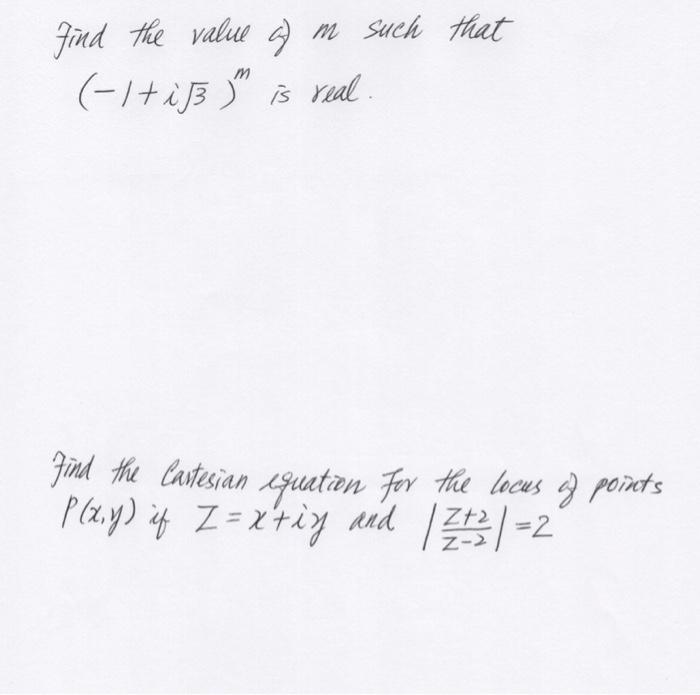 Find the value of m such that
(-1+i√3)^m is real.
Find the Cartesian equation for the locus of points
P(x,y) if Z=x+iy and |(z+2)/(z-2)|=2